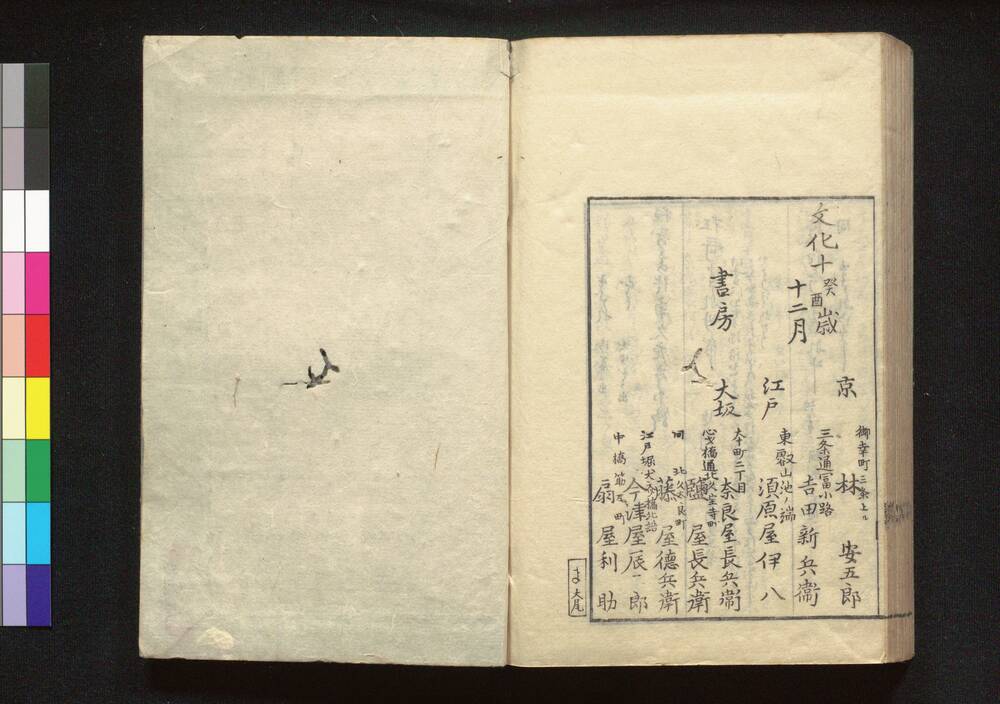 文化十癸酉歳
十二月
書房
京
御幸町三条上ル
林 安五郎
三条通富小路
吉田新兵衛
江戸
東叡山池ノ端
須原屋伊八
大坂
本町二丁目
奈良屋長兵衛
心斎橋通北久宝寺町
鹽屋長兵衛
同 北久太良町
藤屋徳兵衛
江戸堀犬斎橋北詰
今津屋辰三郎
中橋筋
扇屋利助
大尾